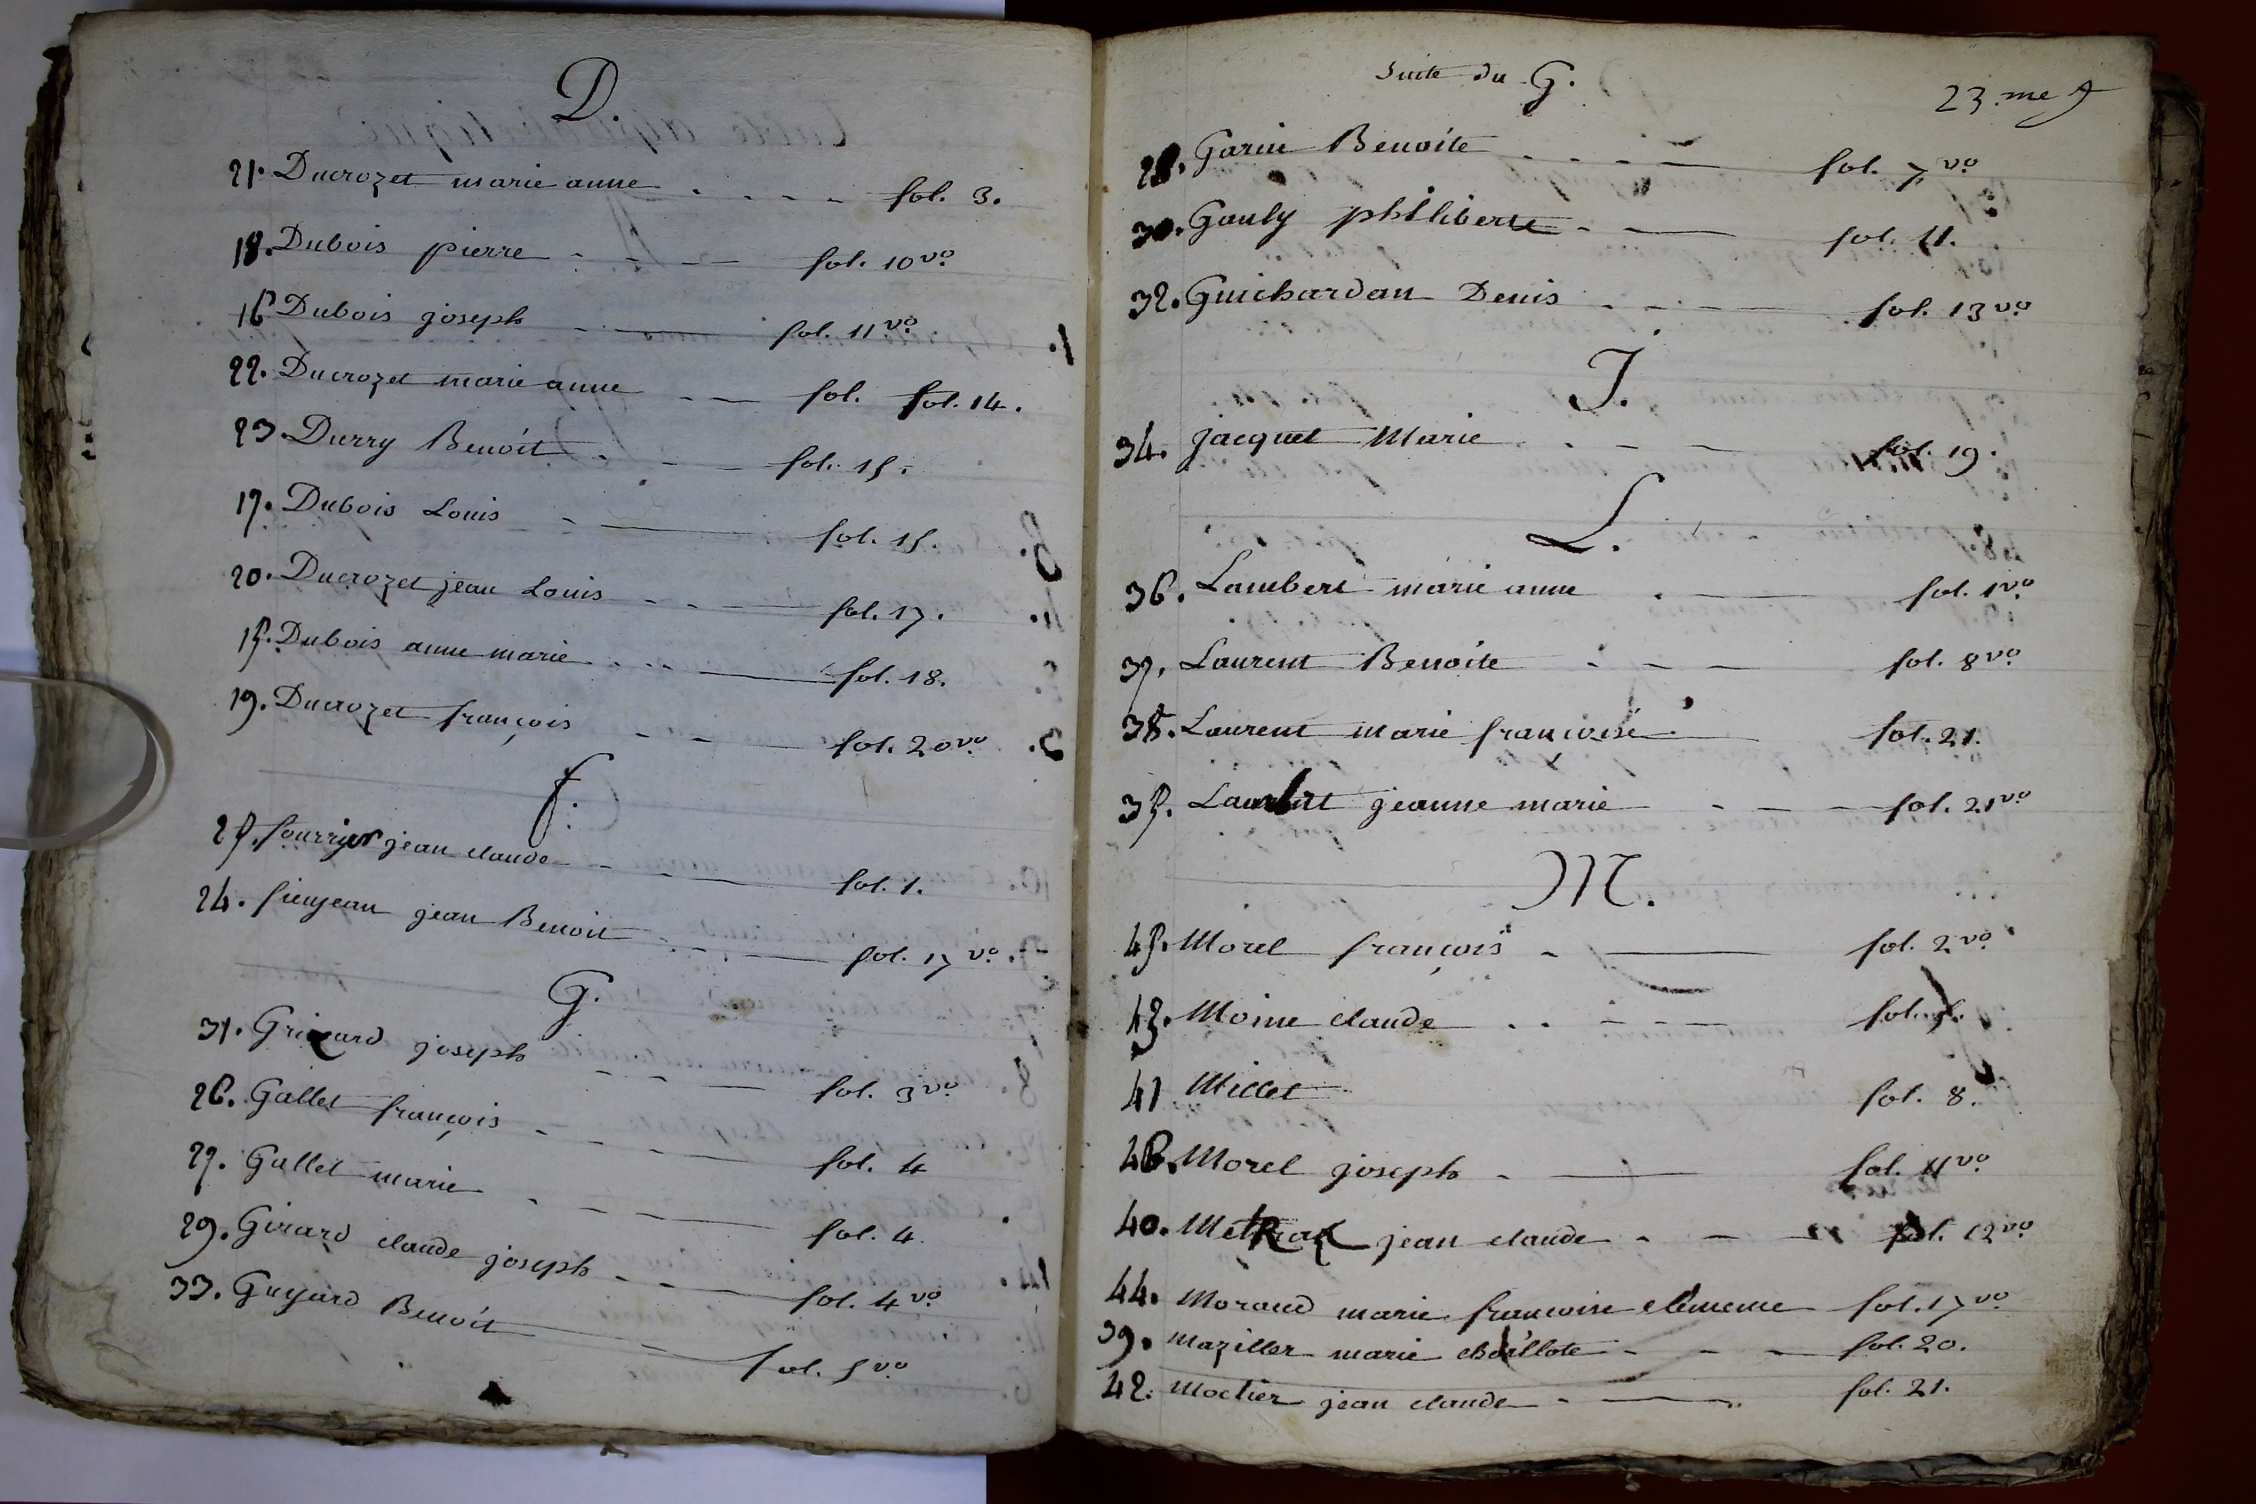 D.
21. Ducrozet marie anne fol. 3.
18. Dubois pierre fol. 10 vo.
16 Dubois joseph fol. 11 vo.
22. Ducrozet marie anne fol. fol. 14.
23. Durry Benoit fol. 15.
17. Dubois Louis fol. 15.
20. Ducrozet jean Louis fol. 17.
15. Dubois anne marie fol. 18.
19. Ducrozet françois fol. 20 vo.
f.
25. fourrier jean claude fol. 1.
24. jean Benoit fol. 17 vo.
G.
31. Grizard joseph fol. 3 vo.
26. Gallet françois fol. 4
27. Gallet marie fol. 4
29. Girard claude joseph fol. 4 vo.
33. Guyard Benoit fol. 5 vo.
Suite du G.
23. me
28. Garin Benoite fol. 7 vo.
30. Gauly philiberte fol. 11.
32. Guichardan Denis fol. 13 vo.
J.
34. jacquet Marie fol. 19.
L.
36. Lambert marie anne fol. 1 vo.
37. Laurent Benoite fol. 8 vo.
38. Laurent marie françoise fol. 21.
35. Lambert jeanne marie fol. 21 vo
M.
45. Morel françois fol. 2 vo.
43. Moine claude fol.
41 Millet fol. 8.
46. Morel joseph fol. 11 vo.
40. Metrat jean claude fol. 12 vo.
44. Moraud marie françoise clémence fol. 17 vo.
39. Maziller marie fol. 20.
42. Moctier jean claude fol. 21.